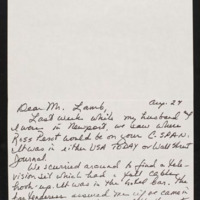 Aug. 24
Dear Mr. Lamb,
Last week while my husband & I
were in Newport, we saw where
Ross Perot would be on your C-SPAN.
It was in either USA TODAY or Wall Street
Journal.
We scurried around to find a tele-
vision set which had a full cable
hook-up. It was in the hotel bar. The
bartenderess assured me if we came in